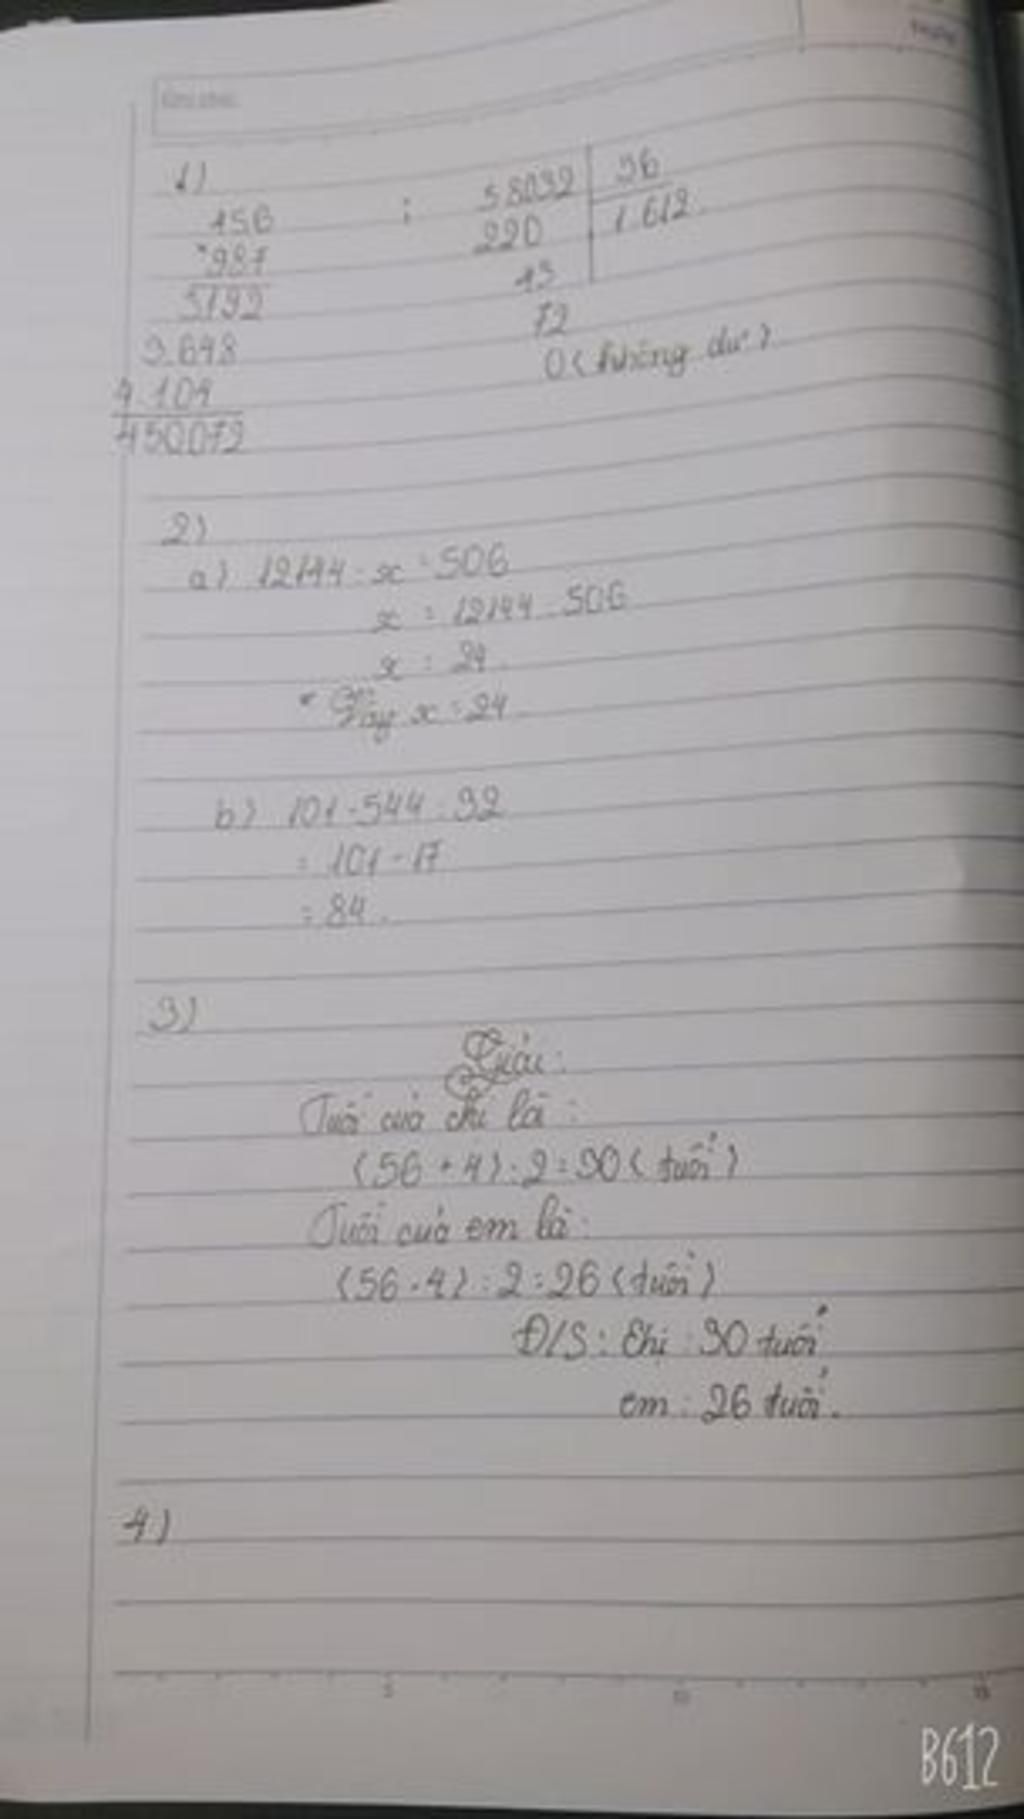 1)
456 ; 58032 36
× 987 220 1.612
3192 43
3.648 72
4.104 0 (không dư)
450072
2)
a) 12144 : x = 506
x = 12144 : 506
x = 24
* Vậy x = 24
b) 101 - 544 : 32
= 101 - 17
= 84.
3)
Giải:
Tuổi của chị là :
(56 + 4) : 2 = 30 (tuổi)
Tuổi của em là :
(56 - 4) : 2 = 26 (tuổi)
Đ/S : Chị : 30 tuổi
em : 26 tuổi.
4)
5 10 15
B612